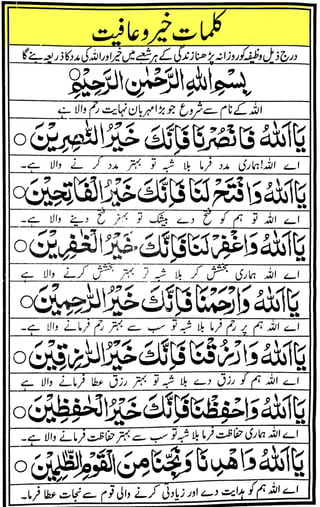 کلمات خیر و عافیت
درج ذیل وظیفہ کو روزانہ پڑھنا زندگی کے ہر شعبے میں خیر اور اللہ کی مدد کا ذریعہ بنے گا
بِسْمِ اللهِ الرَّحْمٰنِ الرَّحِيْمِ
اللہ کے نام سے شروع جو بڑا مہربان نہایت رحم والا ہے
يَا اَللهُ فَانْصُرْنَا فَإِنَّكَ خَيْرُ النّٰصِرِيْنَ
اے اللہ! ہماری مدد فرما بلا شبہ تو بہتر مدد کرنے والا ہے۔
يَا اَللهُ وَافْتَحْ لَنَا فَإِنَّكَ خَيْرُ الْفَاتِحِيْنَ
اے اللہ تو ہم کو فتح دے بیشک تو بہتر فتح دینے والا ہے۔
يَا اَللهُ وَاغْفِرْ لَنَا فَإِنَّكَ خَيْرُ الْغٰفِرِيْنَ
اے اللہ ہماری بخشش کر بلا شبہ تو بہتر بخشش کرنے والا ہے
يَا اَللهُ وَارْحَمْنَا فَإِنَّكَ خَيْرُ الرَّاحِمِيْنَ
اے اللہ ہم پر رحم فرما بلا شبہ تو سب سے بہتر رحم فرمانے والا ہے۔
يَا اَللهُ وَارْزُقْنَا فَإِنَّكَ خَيْرُ الرّٰزِقِيْنَ
اے اللہ ہم کو رزق دے بلا شبہ تو بہتر رزق عطا فرمانے والا ہے
يَا اَللهُ وَاحْفَظْنَا فَإِنَّكَ خَيْرُ الْحٰفِظِيْنَ
اے اللہ ہماری حفاظت فرما بلا شبہ تو سب سے بہتر حفاظت فرمانے والا ہے۔
يَا اَللهُ وَاهْدِنَا وَنَجِّنَا مِنَ الْقَوْمِ الظّٰلِمِيْنَ
اے اللہ ہم کو ہدایت دے اور زیادتی کرنے والی قوم سے نجات عطا فرما۔